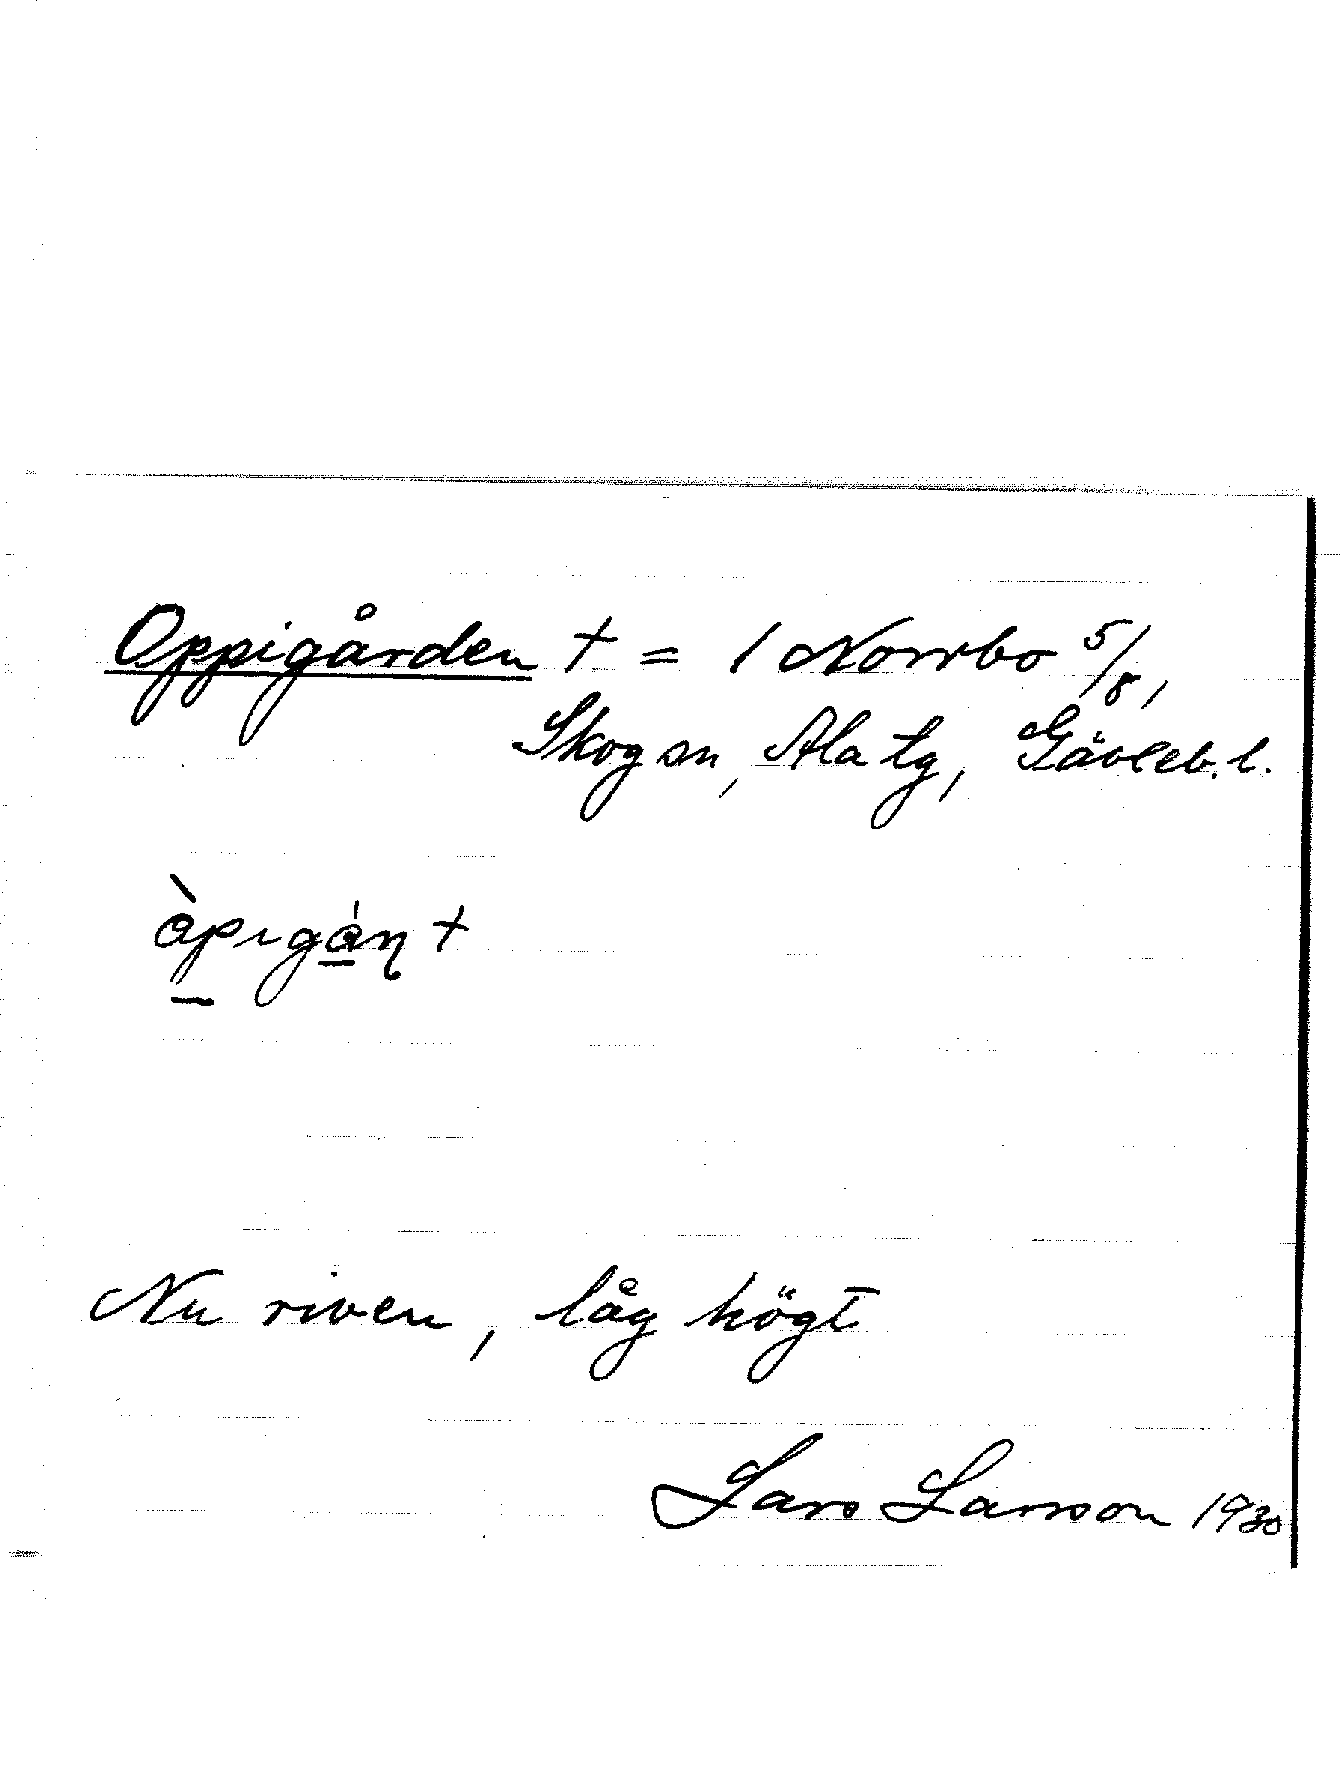 Oppigården † = 1 Norrbo 5/8,
Skog sn, Ala tg, Gävleb. l.
àpıgán̩ †
Nu riven, låg högt
Lars Larsson 1930